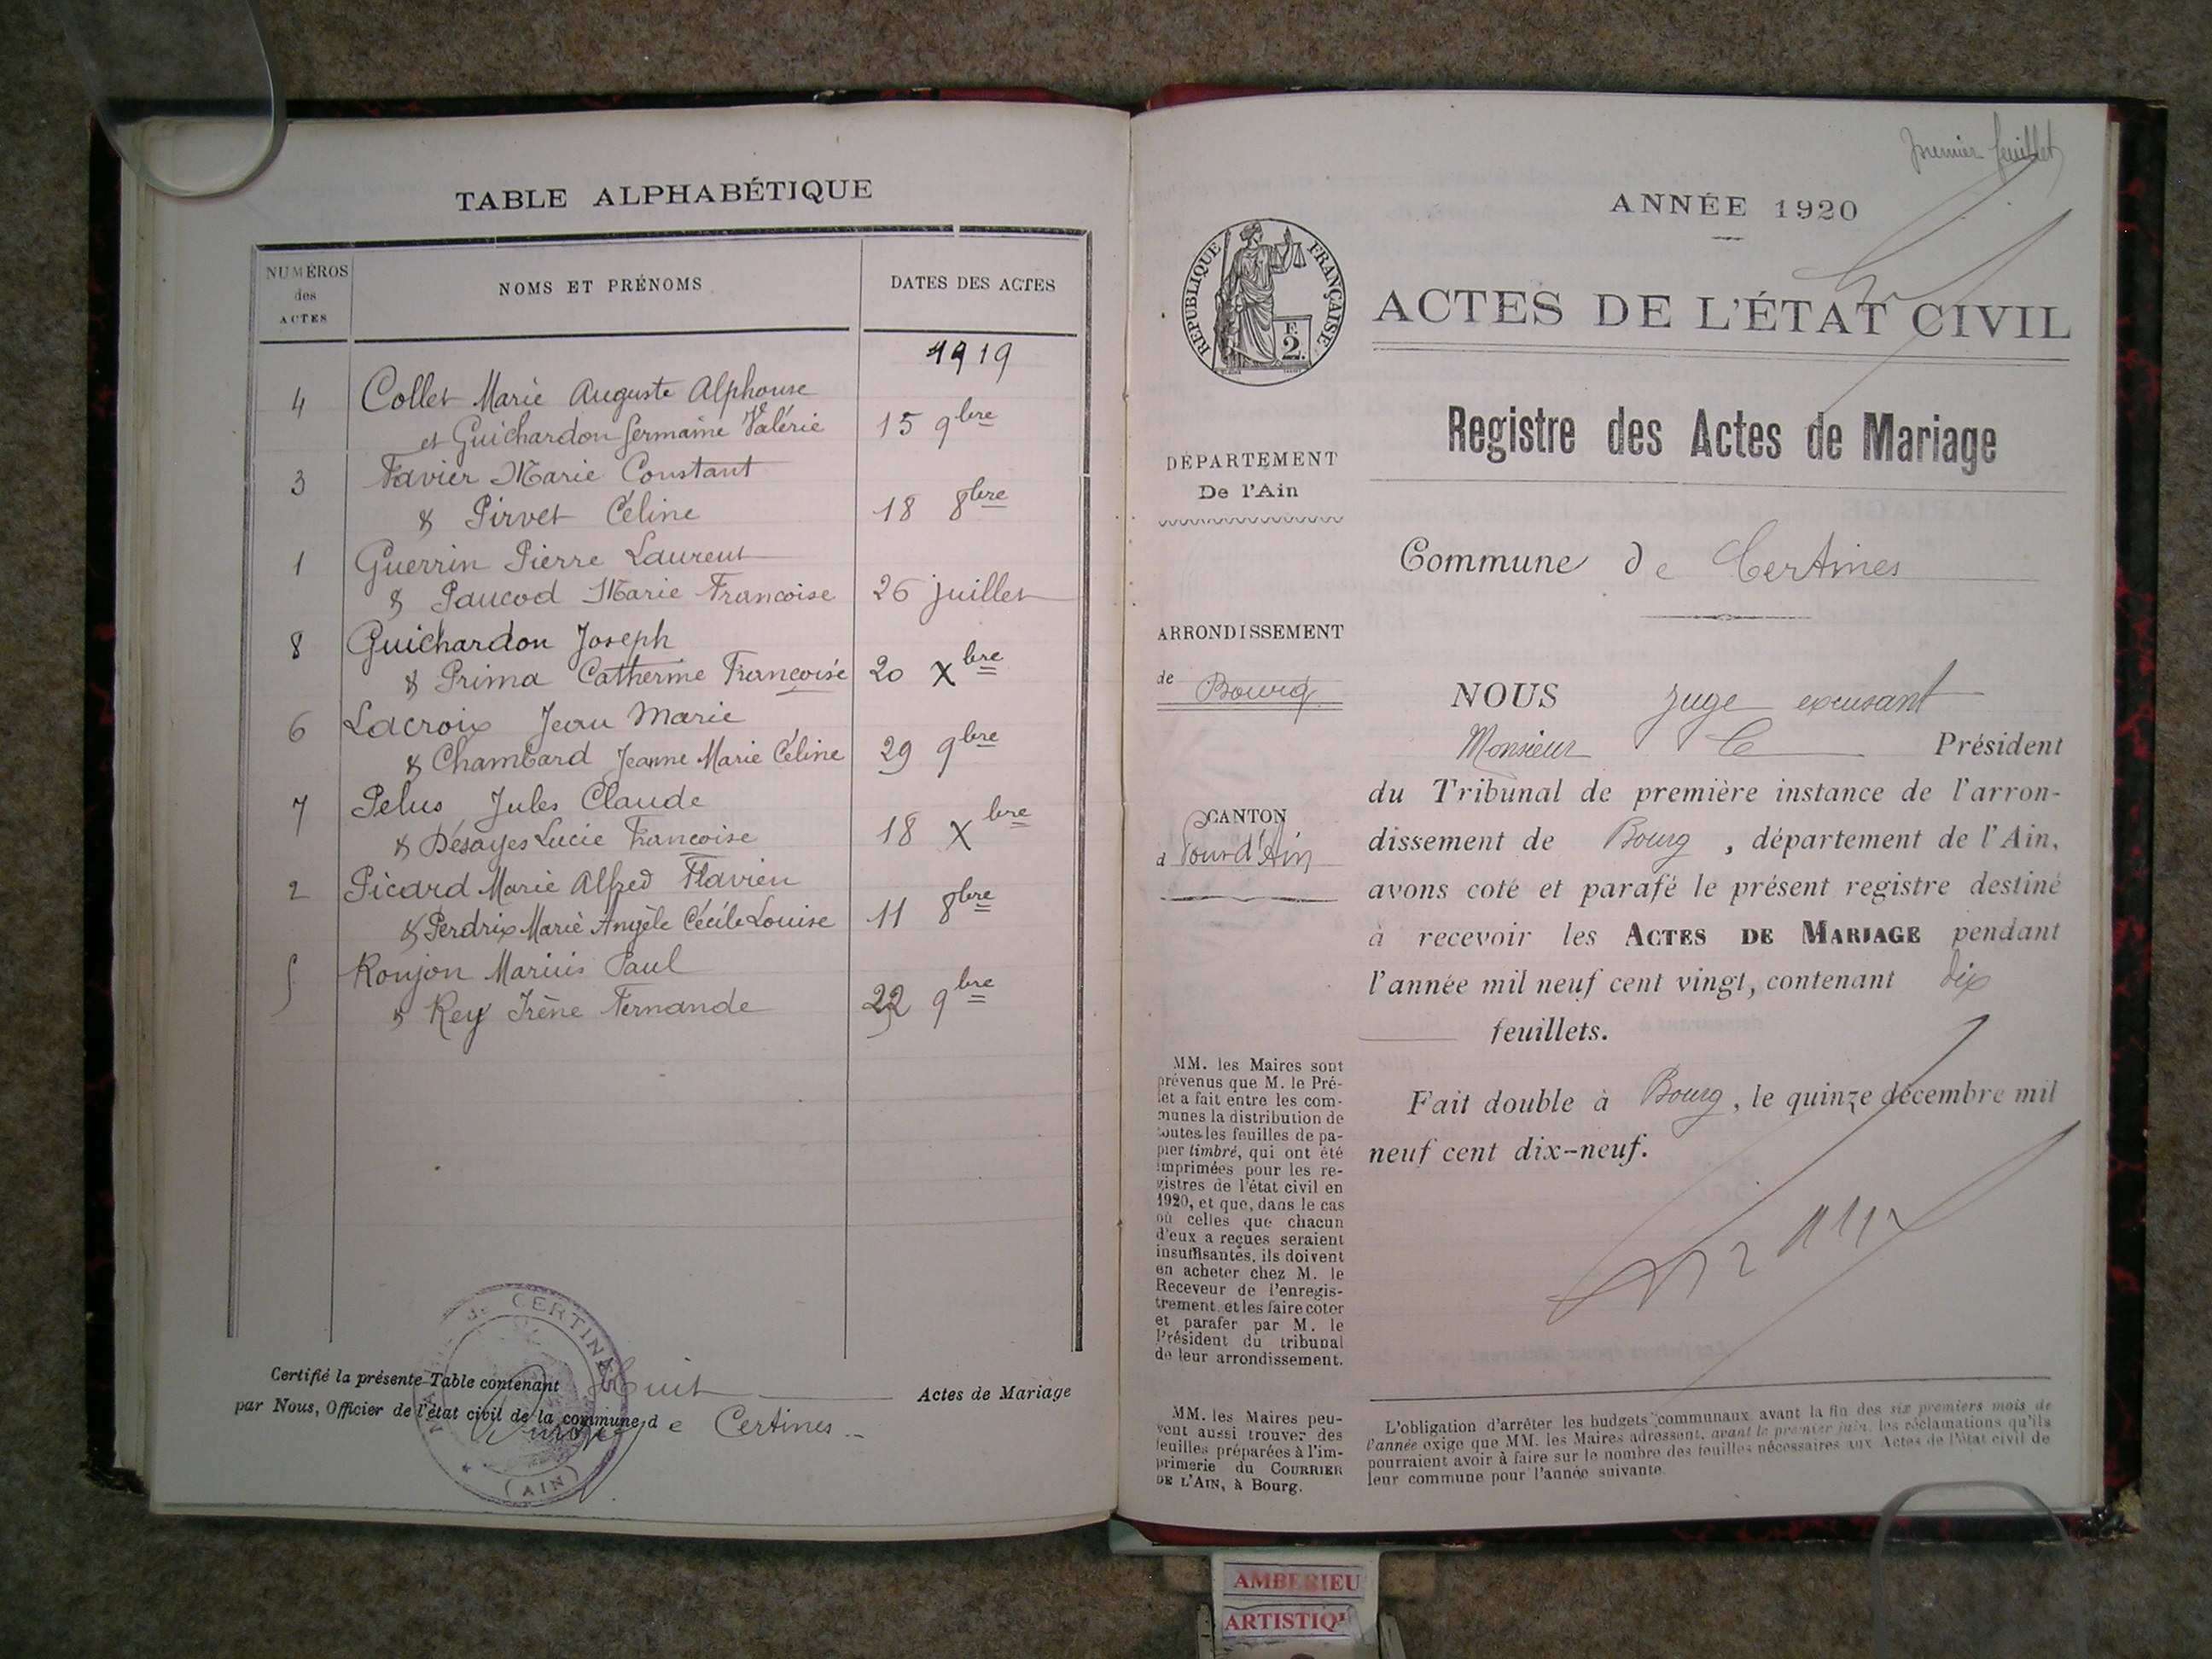 TABLE ALPHABÉTIQUE
NUMÉROS
des
ACTES
NOMS ET PRÉNOMS
DATES DES ACTES
1919
4 Collet Marie Auguste Alphonse
et Guichardon Germaine Valérie 15 9bre
3 Favier Marie Constant
& Pirvet Céline 18 8bre
1 Guerrin Pierre Laurent
& Paucod Marie Francoise 26 juillet
8 Guichardon Joseph
& Prima Catherine Françoise 20 Xbre
6 Lacroix Jean Marie
& Chambard Jeanne Marie Céline 29 9bre
7 Pelus Jules Claude
& Désayes Lucie Francoise 18 Xbre
2 Picard Marie Alfred Flavien
& Perdrix Marie Angèle Cécile Louise 11 8bre
5 Roujon Marius Paul
& Rey Irène Fernande 22 9bre
Certifié la présente Table contenant Huit Actes de Mariage
par Nous, Officier de l'état civil de la commune de Certines
CERTINES
(AIN)
premier feuillet
ANNÉE 1920
RÉPUBLIQUE FRANÇAISE
F.
2.
ACTES DE L'ÉTAT CIVIL
Registre des Actes de Mariage
DÉPARTEMENT
De l'Ain
Commune de Certines
ARRONDISSEMENT
de Bourg
CANTON
d Pont d'Ain
NOUS Juge excusant
Monsieur le Président
du Tribunal de première instance de l'arron-
dissement de Bourg, département de l'Ain,
avons coté et parafé le présent registre destiné
à recevoir les ACTES DE MARIAGE pendant
l'année mil neuf cent vingt, contenant dix
feuillets.
Fait double à Bourg, le quinze décembre mil
neuf cent dix-neuf.
MM. les Maires sont
prévenus que M. le Pré-
fet a fait entre les com-
munes la distribution de
toutes les feuilles de pa-
pier timbré, qui ont été
imprimées pour les re-
gistres de l'état civil en
1920, et que, dans le cas
où celles que chacun
d'eux a reçues seraient
insuffisantes, ils doivent
en acheter chez M. le
Receveur de l'enregis-
trement et les faire coter
et parafer par M. le
Président du tribunal
de leur arrondissement.
MM. les Maires peu-
vent aussi trouver des
feuilles préparées à l'im-
primerie du COURRIER
DE L'AIN, à Bourg.
L'obligation d'arrêter les budgets communaux avant la fin des six premiers mois de
l'année exige que MM. les Maires adressent, avant le premier juin, les réclamations qu'ils
pourraient avoir à faire sur le nombre des feuilles nécessaires aux Actes de l'état civil de
leur commune pour l'année suivante.
AMBERIEU
ARTISTIQU